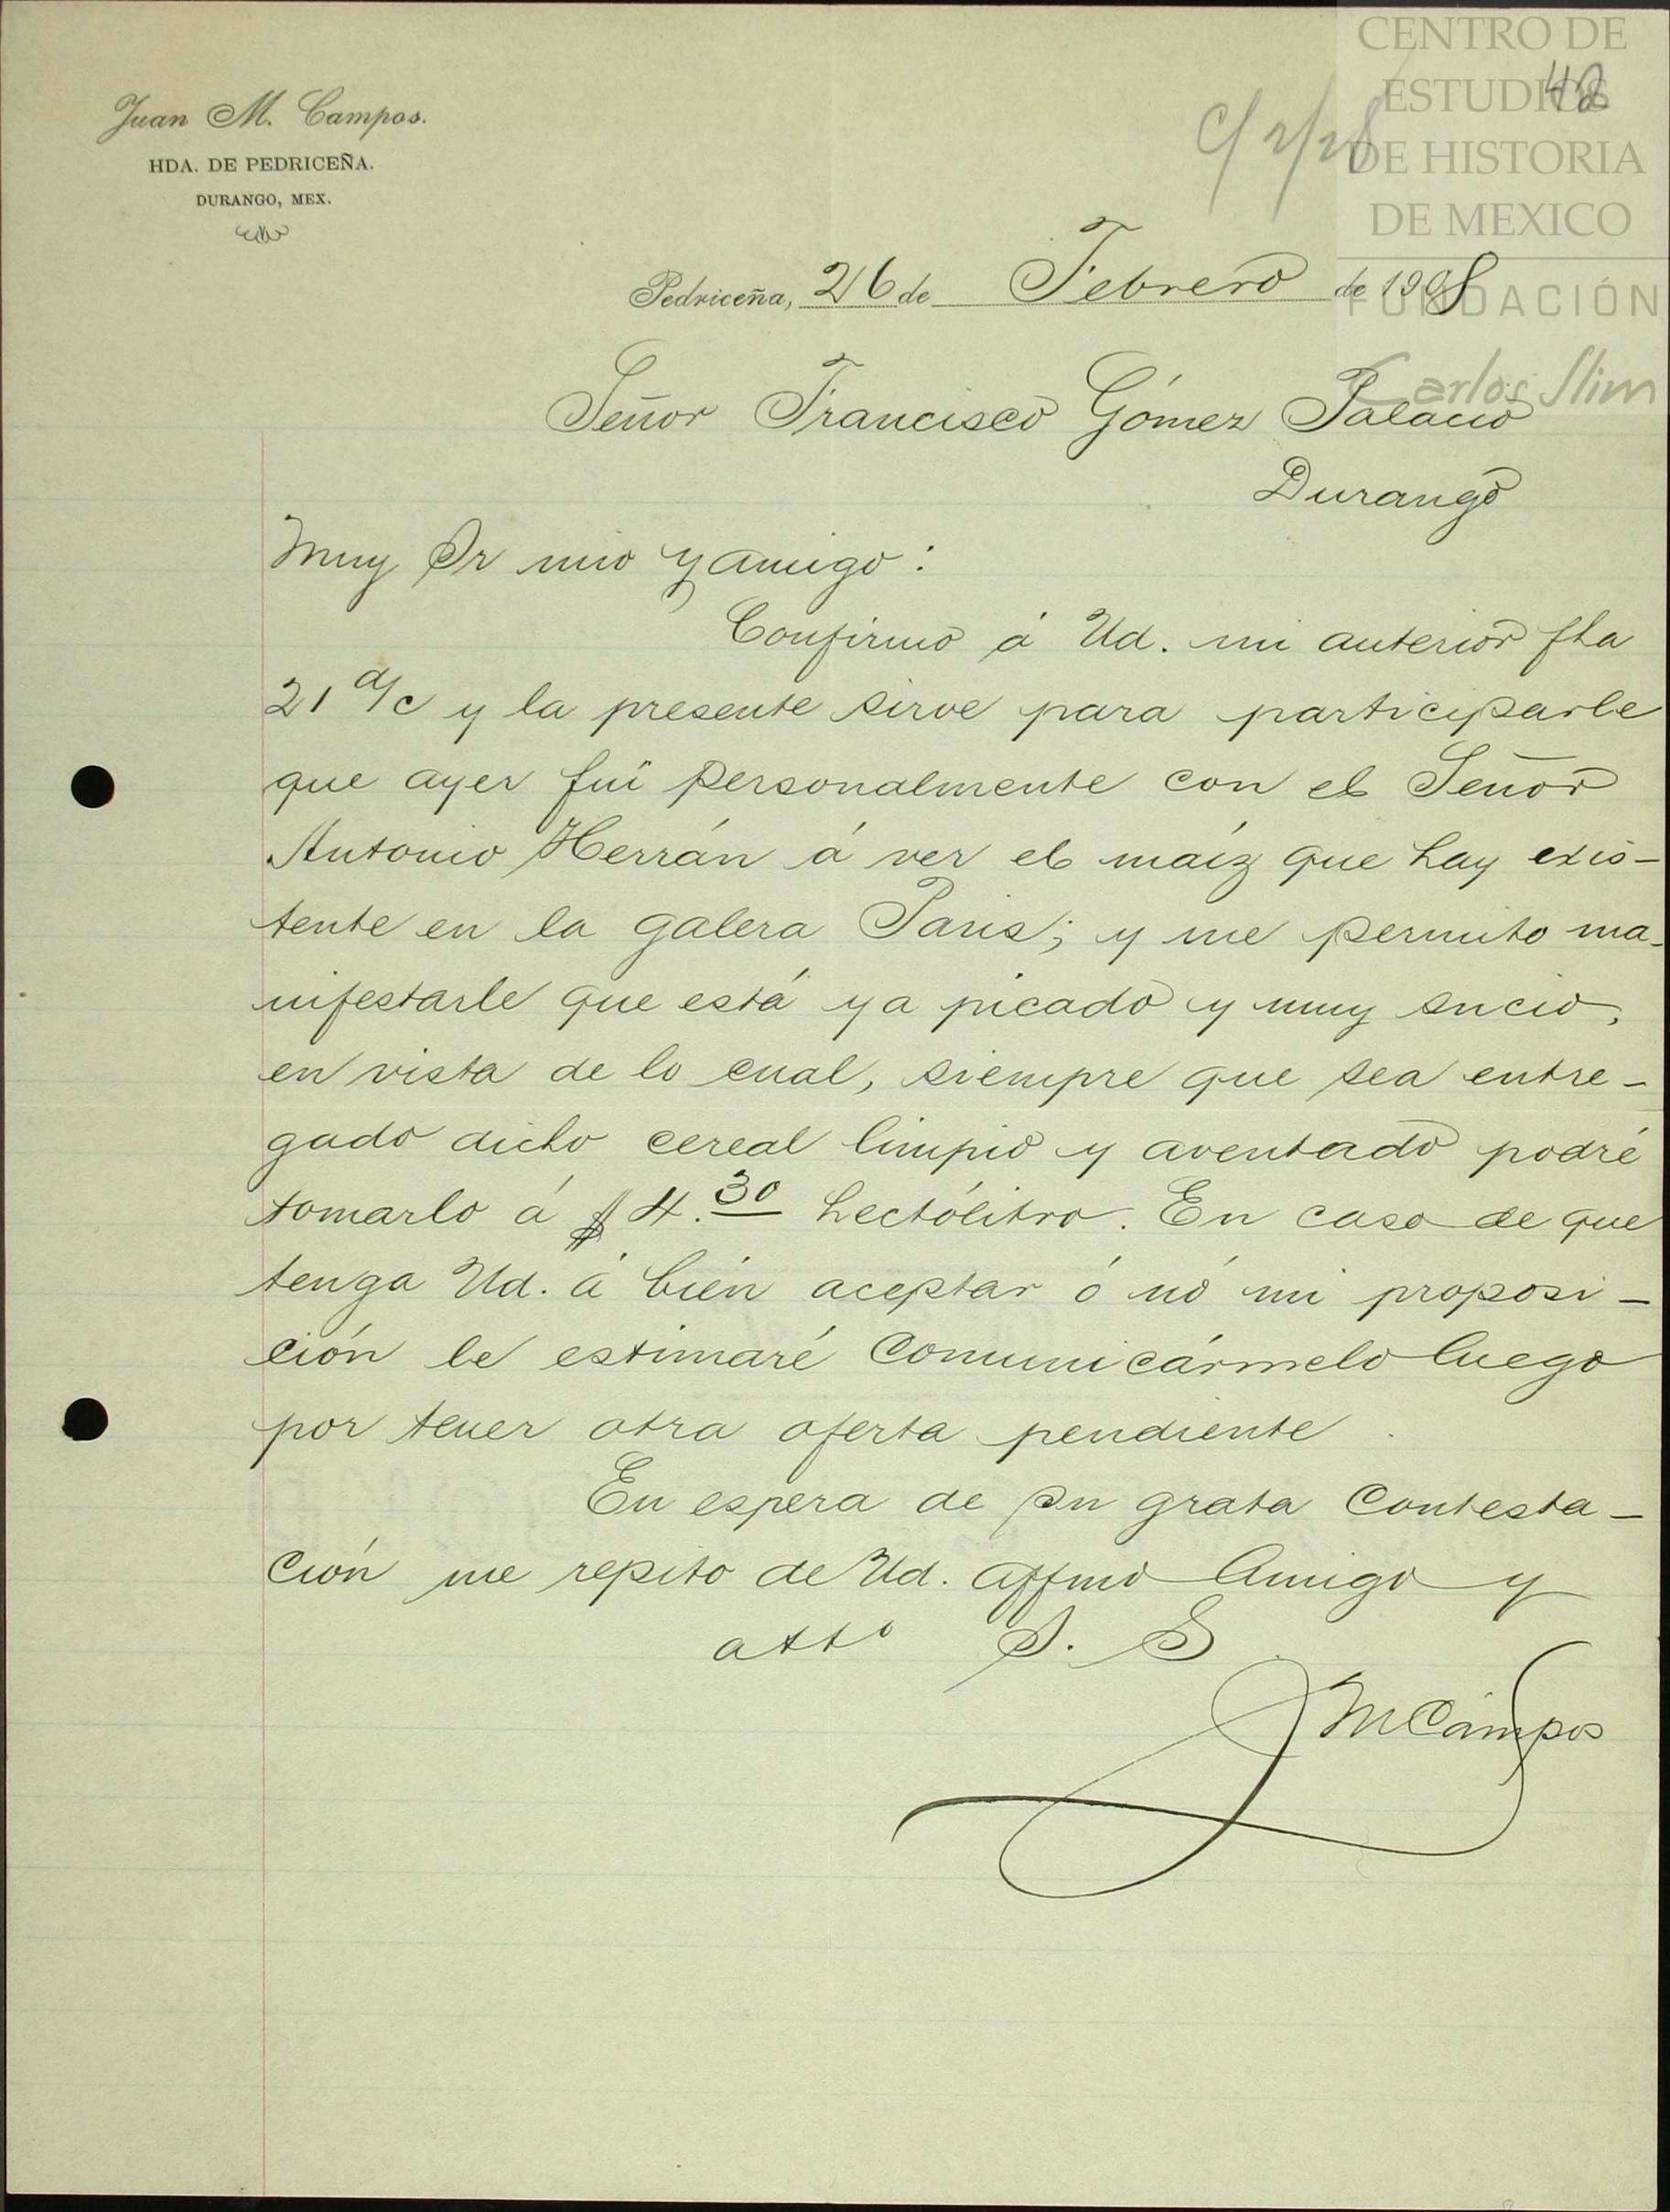 CENTRO DE
ESTUDIOS
DE HISTORIA
DE MEXICO
FUNDACIÓN
Carlos Slim
42
C/ 2/28
Juan M. Campos.
HDA. DE PEDRICEÑA.
DURANGO, MEX.
Pedriceña, 26 de Febrero de 1908
Señor Francisco Gómez Palacio
Durango
Muy Sr mio y amigo:
Confirmo á Ud. mi anterior fha
21 d/c y la presente sirve para participarle
que ayer fuí personalmente con el Señor
Antonio Herrán á ver el maíz que hay exis-
tente en la galera Paris; y me permito ma-
nifestarle que está ya picado y muy sucio,
en vista de lo cual, siempre que sea entre-
gado dicho cereal limpio y aventado podré
tomarlo á $4.30 hectólitro. En caso de que
tenga Ud. á bién aceptar ó nó mi proposi-
ción le estimaré comunicármelo luego
por tener otra oferta pendiente.
En espera de su grata contesta-
ción me repito de Ud. affmo amigo y
atto S. S.
JMCampos